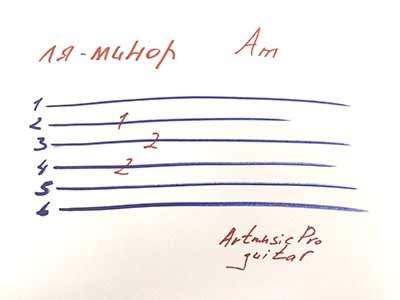 ля-минор Am
1
2 1
3 2
4 2
5
6
ArtmusicPro
guitar